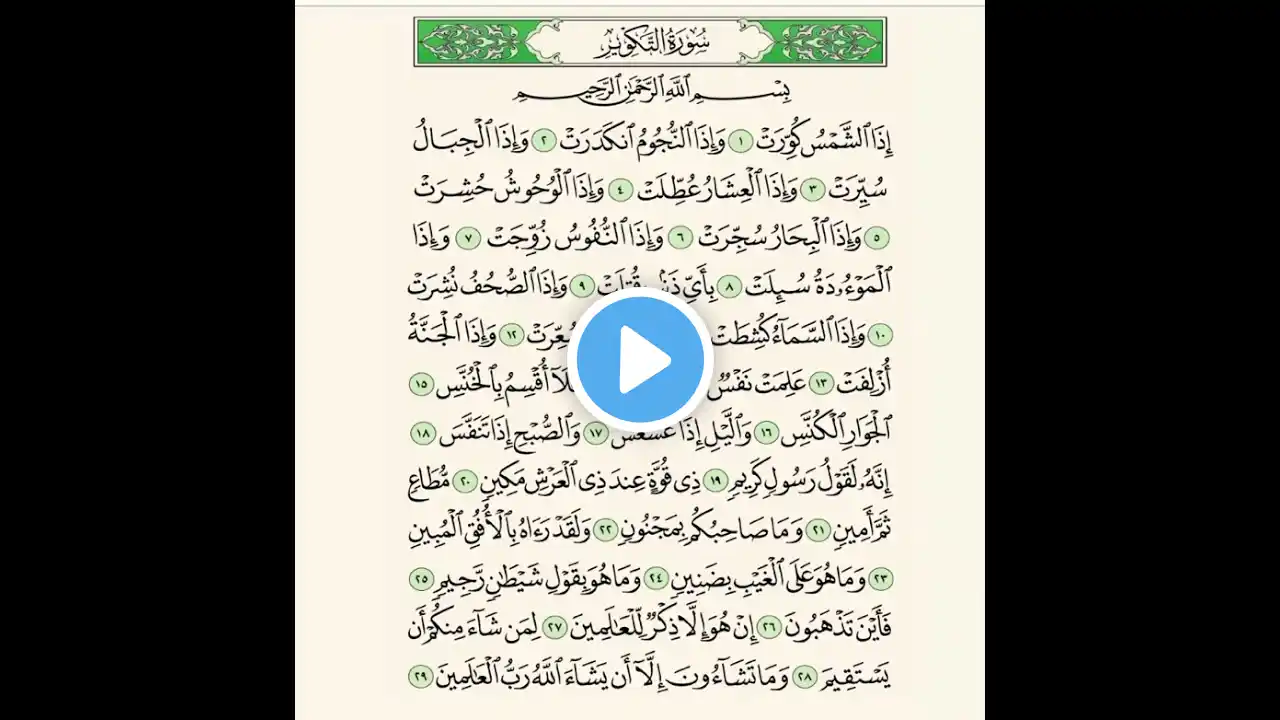 سُورَةُ التَّكْوِيرِ
بِسْمِ ٱللَّهِ ٱلرَّحْمَٰنِ ٱلرَّحِيمِ
إِذَا ٱلشَّمْسُ كُوِّرَتْ ١ وَإِذَا ٱلنُّجُومُ ٱنكَدَرَتْ ٢ وَإِذَا ٱلْجِبَالُ
سُيِّرَتْ ٣ وَإِذَا ٱلْعِشَارُ عُطِّلَتْ ٤ وَإِذَا ٱلْوُحُوشُ حُشِرَتْ
٥ وَإِذَا ٱلْبِحَارُ سُجِّرَتْ ٦ وَإِذَا ٱلنُّفُوسُ زُوِّجَتْ ٧ وَإِذَا
ٱلْمَوْءُۥدَةُ سُئِلَتْ ٨ بِأَيِّ ٩ وَإِذَا ٱلصُّحُفُ نُشِرَتْ
١٠ وَإِذَا ٱلسَّمَآءُ كُشِطَتْ سُعِّرَتْ ١٢ وَإِذَا ٱلْجَنَّةُ
أُزْلِفَتْ ١٣ عَلِمَتْ نَفْسٌ فَلَآ أُقْسِمُ بِٱلْخُنَّسِ ١٥
ٱلْجَوَارِ ٱلْكُنَّسِ ١٦ وَٱلَّيْلِ إِذَا عَسْعَسَ ١٧ وَٱلصُّبْحِ إِذَا تَنَفَّسَ ١٨
إِنَّهُۥ لَقَوْلُ رَسُولٍ كَرِيمٍ ١٩ ذِى قُوَّةٍ عِندَ ذِى ٱلْعَرْشِ مَكِينٍ ٢٠ مُّطَاعٍ
ثَمَّ أَمِينٍ ٢١ وَمَا صَاحِبُكُم بِمَجْنُونٍ ٢٢ وَلَقَدْ رَءَاهُ بِٱلْأُفُقِ ٱلْمُبِينِ
٢٣ وَمَا هُوَ عَلَى ٱلْغَيْبِ بِضَنِينٍ ٢٤ وَمَا هُوَ بِقَوْلِ شَيْطَٰنٍ رَّجِيمٍ ٢٥
فَأَيْنَ تَذْهَبُونَ ٢٦ إِنْ هُوَ إِلَّا ذِكْرٌ لِّلْعَٰلَمِينَ ٢٧ لِمَن شَآءَ مِنكُمْ أَن
يَسْتَقِيمَ ٢٨ وَمَا تَشَآءُونَ إِلَّآ أَن يَشَآءَ ٱللَّهُ رَبُّ ٱلْعَٰلَمِينَ ٢٩